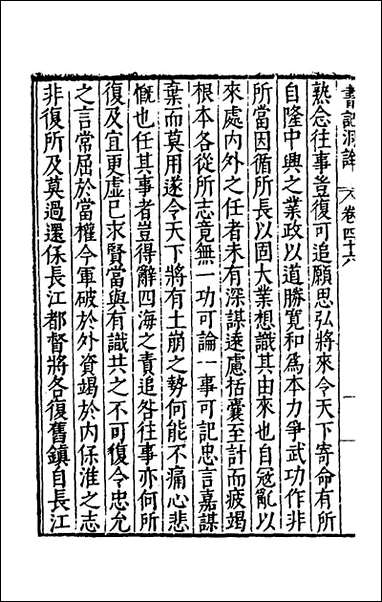 書記洞詮 卷四十六
熟念往事豈復可追願思弘將來令天下寄命有所
自隆中興之業政以道勝寛和爲本力爭武功作非
所當因循所長以固大業想識其由來也自冦亂以
來處内外之任者未有深謀遠慮括囊至計而疲竭
根本各從所志竟無一功可論一事可記忠言嘉謀
棄而莫用遂令天下將有土崩之勢何能不痛心悲
慨也任其事者豈得辭四海之責追咎往事亦何所
復及宜更虚巳求賢當與有識共之不可復令忠允
之言常屈於當權今軍破於外資竭於内保淮之志
非復所及莫過還保長江都督將各復舊鎮自長江